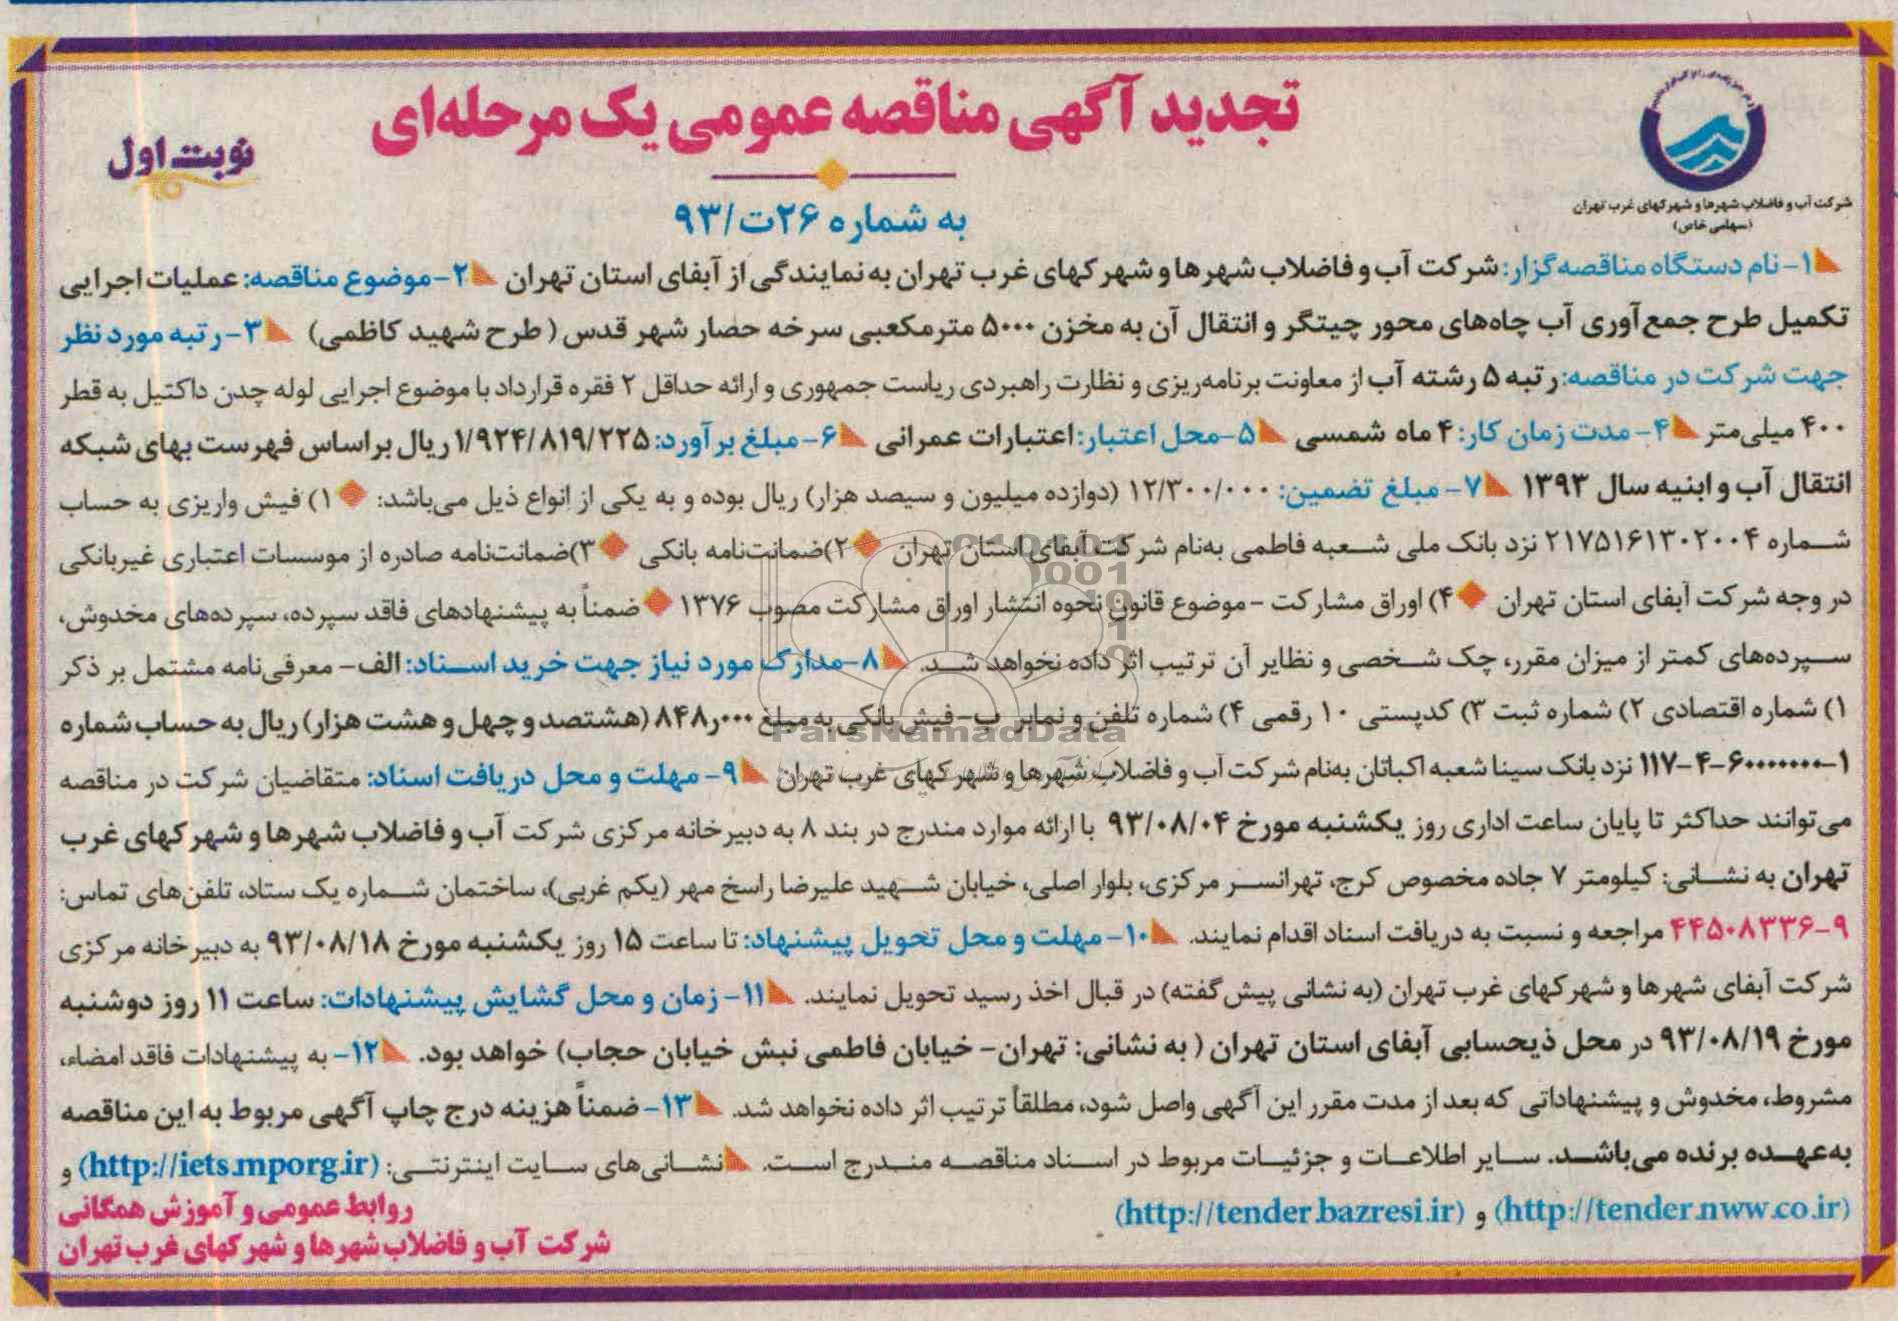 تجدید آگهی مناقصه عمومی یک مرحله‌ای
نوبت اول
به شماره ۲۶ت/۹۳
شرکت آب و فاضلاب شهرها و شهرکهای غرب تهران
(سهامی خاص)
۱- نام دستگاه مناقصه‌گزار: شرکت آب و فاضلاب شهرها و شهرکهای غرب تهران به نمایندگی از آبفای استان تهران ۲- موضوع مناقصه: عملیات اجرایی
تکمیل طرح جمع‌آوری آب چاه‌های محور چیتگر و انتقال آن به مخزن ۵۰۰۰ مترمکعبی سرخه حصار شهر قدس (طرح شهید کاظمی) ۳- رتبه مورد نظر
جهت شرکت در مناقصه: رتبه ۵ رشته آب از معاونت برنامه‌ریزی و نظارت راهبردی ریاست جمهوری و ارائه حداقل ۲ فقره قرارداد با موضوع اجرایی لوله چدن داکتیل به قطر
۴۰۰ میلی‌متر ۴- مدت زمان کار: ۴ ماه شمسی ۵- محل اعتبار: اعتبارات عمرانی ۶- مبلغ برآورد: ۱/۹۲۴/۸۱۹/۲۲۵ ریال براساس فهرست بهای شبکه
انتقال آب و ابنیه سال ۱۳۹۳ ۷- مبلغ تضمین: ۱۲/۳۰۰/۰۰۰ (دوازده میلیون و سیصد هزار) ریال بوده و به یکی از انواع ذیل می‌باشد: ۱) فیش واریزی به حساب
شماره ۲۱۷۵۱۶۱۳۰۲۰۰۴ نزد بانک ملی شعبه فاطمی به‌نام شرکت آبفای استان تهران ۲)ضمانت‌نامه بانکی ۳)ضمانت‌نامه صادره از موسسات اعتباری غیربانکی
در وجه شرکت آبفای استان تهران ۴) اوراق مشارکت - موضوع قانون نحوه انتشار اوراق مشارکت مصوب ۱۳۷۶ ضمناً به پیشنهادهای فاقد سپرده، سپرده‌های مخدوش،
سپرده‌های کمتر از میزان مقرر، چک شخصی و نظایر آن ترتیب اثر داده نخواهد شد. ۸- مدارک مورد نیاز جهت خرید اسناد: الف- معرفی‌نامه مشتمل بر ذکر
۱) شماره اقتصادی ۲) شماره ثبت ۳) کدپستی ۱۰ رقمی ۴) شماره تلفن و نمابر ب- فیش بانکی به مبلغ ۸۴۸ر۰۰۰ (هشتصد و چهل و هشت هزار) ریال به حساب شماره
۱-۶۰۰۰۰۰۰۰-۴-۱۱۷ نزد بانک سینا شعبه اکباتان به‌نام شرکت آب و فاضلاب شهرها و شهرکهای غرب تهران ۹- مهلت و محل دریافت اسناد: متقاضیان شرکت در مناقصه
می‌توانند حداکثر تا پایان ساعت اداری روز یکشنبه مورخ ۹۳/۰۸/۰۴ با ارائه موارد مندرج در بند ۸ به دبیرخانه مرکزی شرکت آب و فاضلاب شهرها و شهرکهای غرب
تهران به نشانی: کیلومتر ۷ جاده مخصوص کرج، تهرانسر مرکزی، بلوار اصلی، خیابان شهید علیرضا راسخ مهر (یکم غربی)، ساختمان شماره یک ستاد، تلفن‌های تماس:
۴۴۵۰۸۳۳۶-۹ مراجعه و نسبت به دریافت اسناد اقدام نمایند. ۱۰- مهلت و محل تحویل پیشنهاد: تا ساعت ۱۵ روز یکشنبه مورخ ۹۳/۰۸/۱۸ به دبیرخانه مرکزی
شرکت آبفای شهرها و شهرکهای غرب تهران (به نشانی پیش گفته) در قبال اخذ رسید تحویل نمایند. ۱۱- زمان و محل گشایش پیشنهادات: ساعت ۱۱ روز دوشنبه
مورخ ۹۳/۰۸/۱۹ در محل ذیحسابی آبفای استان تهران ( به نشانی: تهران- خیابان فاطمی نبش خیابان حجاب) خواهد بود. ۱۲- به پیشنهادات فاقد امضاء،
مشروط، مخدوش و پیشنهاداتی که بعد از مدت مقرر این آگهی واصل شود، مطلقاً ترتیب اثر داده نخواهد شد. ۱۳- ضمناً هزینه درج چاپ آگهی مربوط به این مناقصه
به‌عهده برنده می‌باشد. سایر اطلاعات و جزئیات مربوط در اسناد مناقصه مندرج است. نشانی‌های سایت اینترنتی: (http://iets.mporg.ir) و
(http://tender.nww.co.ir) و (http://tender.bazresi.ir)
روابط عمومی و آموزش همگانی
شرکت آب و فاضلاب شهرها و شهرکهای غرب تهران
ParsNamadData